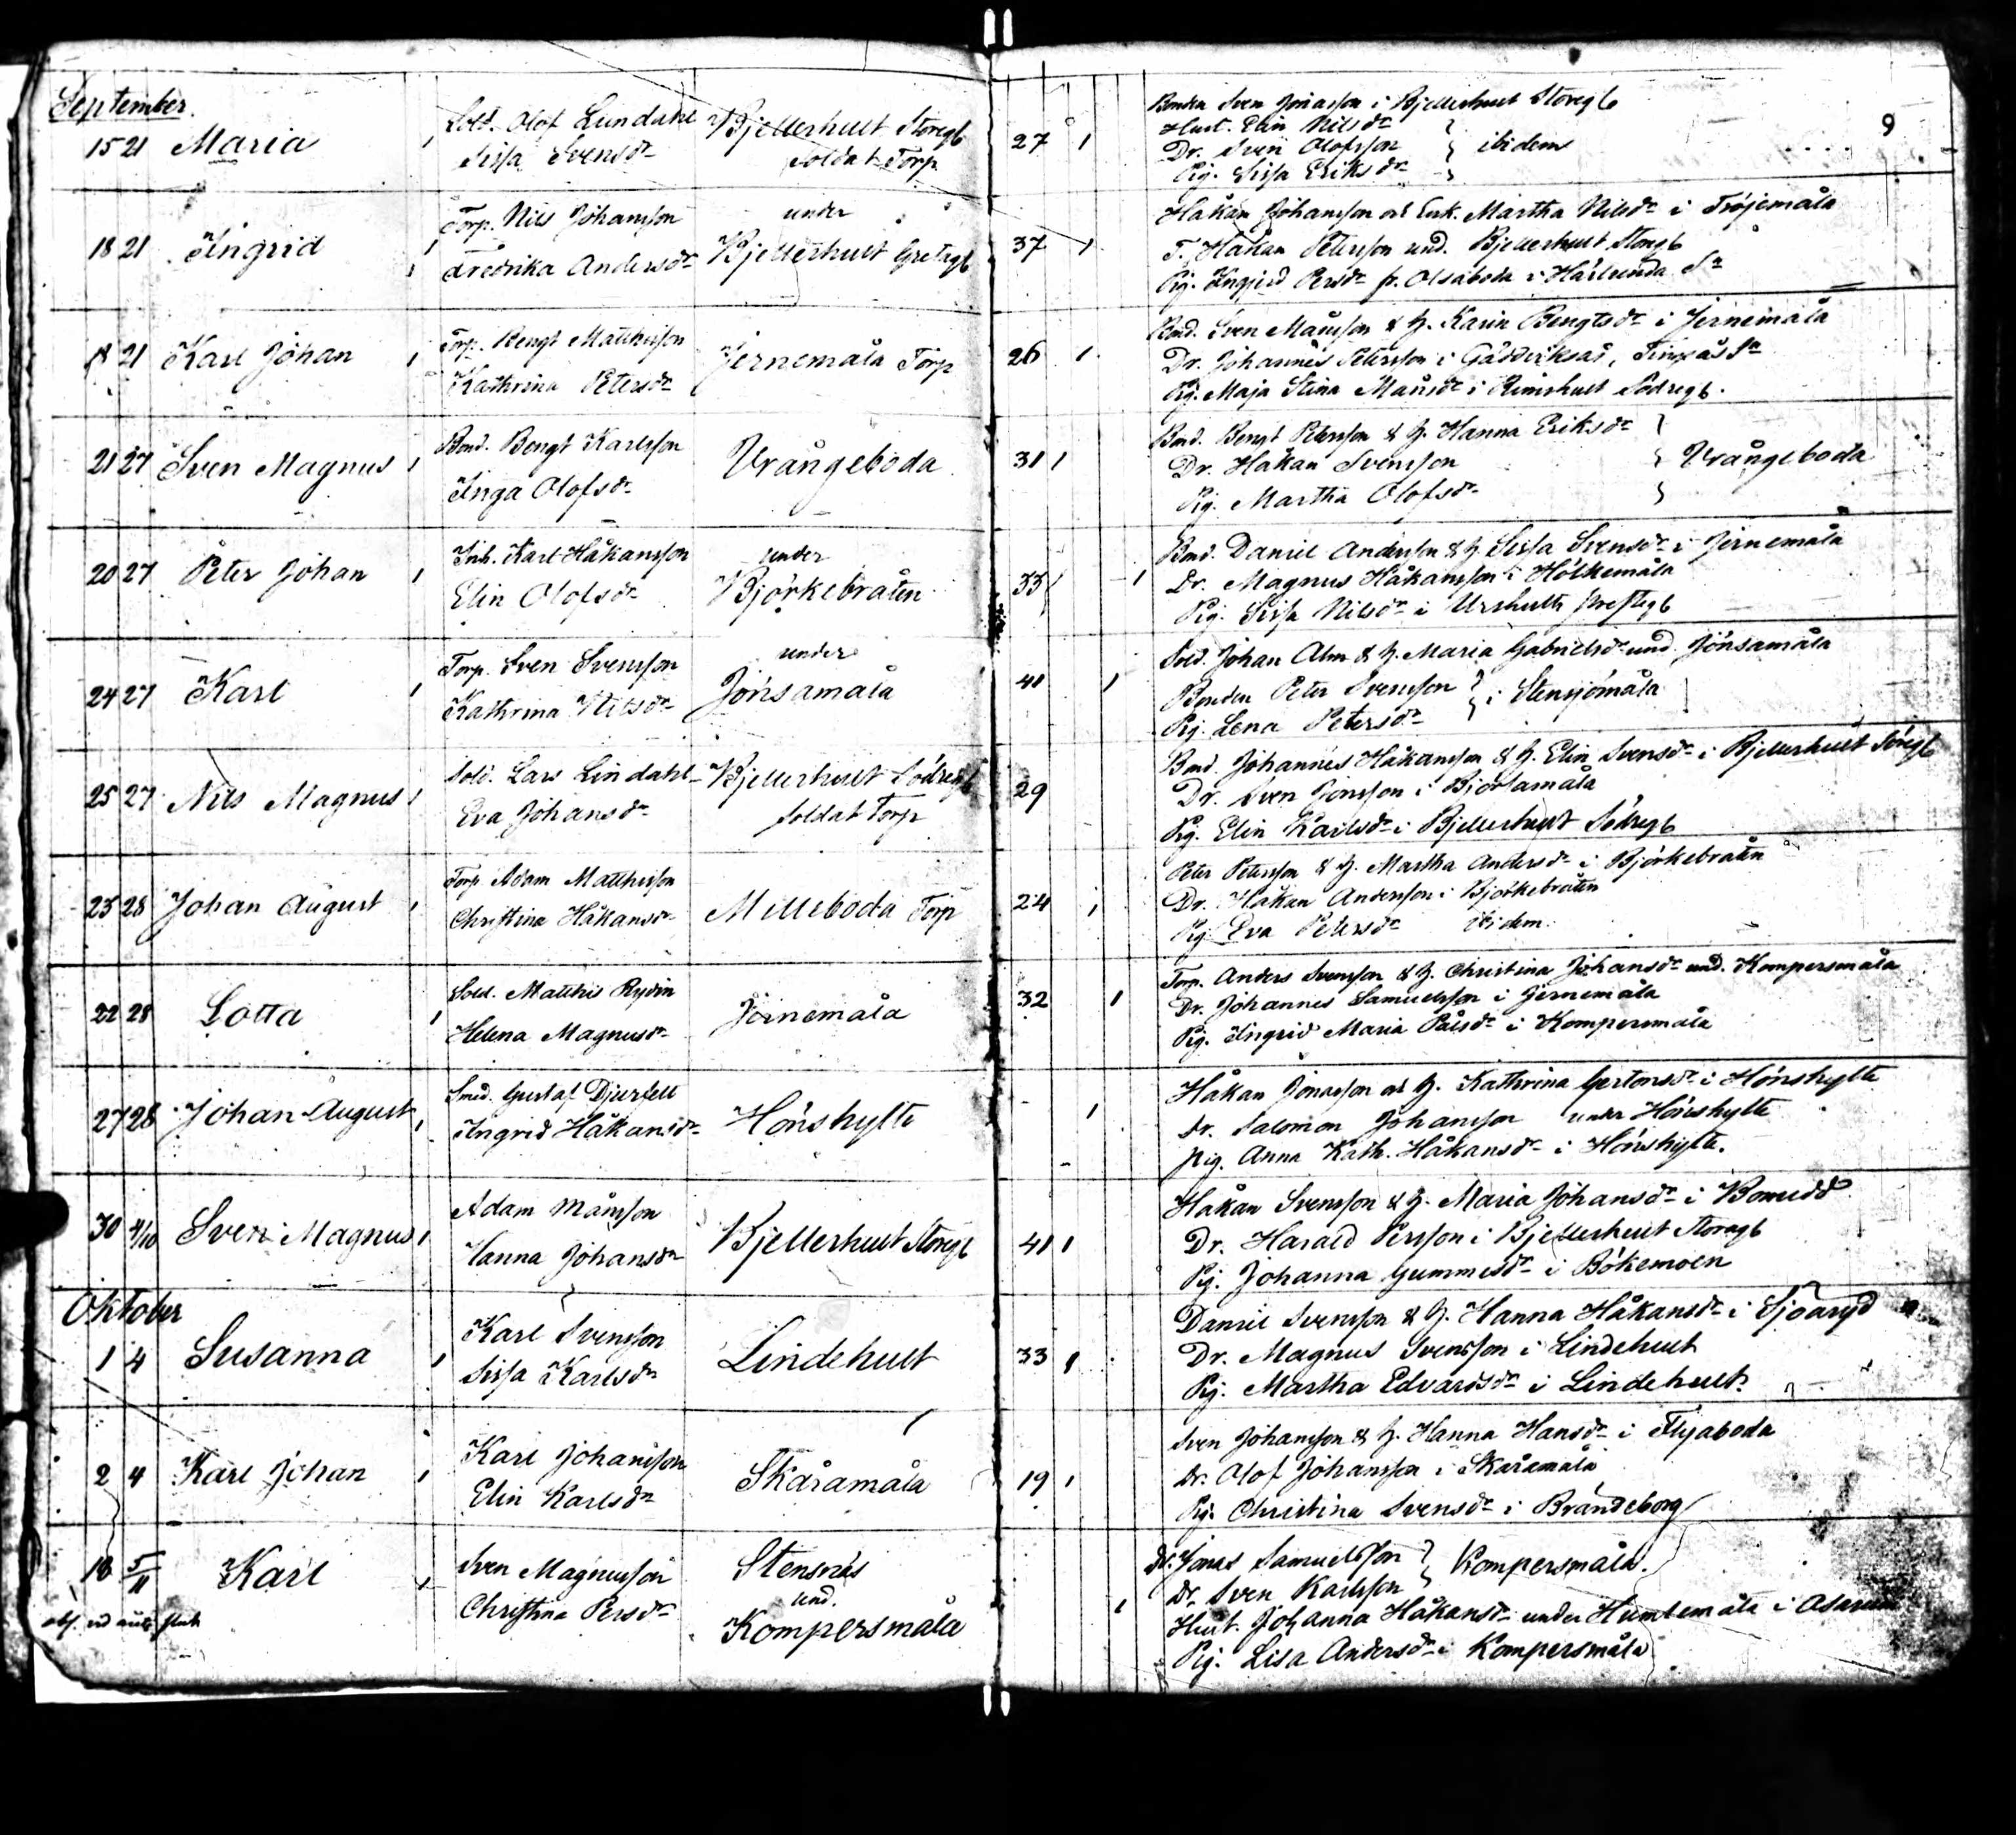 September.
15 21 Maria
Sold. Olof Lundahl
Sissa Svensdr
Bjellerhult Storegb
Soldat Torp
27
Bonden Sven Jonasson i Bjellerhult Storegb
Hust. Elin Nilsdr
Dr. Sven Olofsson } ibidem
Pig. Sissa Eriksdr
9
18 21 Ingrid
Torp. Nils Johansson
Fredrika Andersdr
under
Bjellerhult Gretagb
37
Håkan Johansson och Enk. Martha Nilsdr i Tröjemåla
T. Håkan Petersson und. Bjellerhult Storegb
Pig. Ingjerd Persdr fr. Olsaboda i Härlunda Sn
18 21 Karl Johan
Torp. Bengt Matthisson
Kathrina Petersdr
Jernemåla Torp
26
Bond. Sven Månsson & H. Karin Bengtsdr i Jernemåla
Dr. Johannes Petersson i Tingsås Sn
Pig. Maja Stina Månsdr i Rimshult Södregb.
21 27 Sven Magnus
Bond. Bengt Karlsson
Inga Olofsdr
Vrångeboda
31
Bond. Bengt Petersson & H. Hanna Eriksdr
Dr. Håkan Svensson } Vrångeboda
Pig. Martha Olofsdr
20 27 Peter Johan
Inh. Karl Håkansson
Elin Olofsdr
under
Björkebråten
33
Bond. Daniel Andersson & H. Sissa Svensdr i Jernemåla
Dr. Magnus Håkansson i Hölkemåla
Pig. Sissa Nilsdr i Urshults prestgb
24 27 Karl
Torp. Sven Svensson
Kathrina Nilsdr
under
Jönsamåla
41
Sold. Johan Alm & H. Maria Gabrielsdr und. Jönsamåla
Bonden Peter Svensson } i Stensjömåla
Pig. Lena Petersdr
25 27 Nils Magnus
Sold. Lars Lindahl
Eva Johansdr
Bjellerhult Södregb
Soldat Torp
29
Bond. Johannes Håkansson & H. Elin Svensdr i Bjellerhult
Dr. Sven Jonsson i Björsamåla
Pig. Elin Karlsdr i Bjellerhult Södregb
23 28 Johan August
Torp. Adam Matthisson
Christina Håkansdr
Milleboda Torp
24
Peter Petersson & H. Martha Andersdr i Björkebråten
Dr. Håkan Andersson i Björkebråten
Pig. Eva Petersdr ibidem.
22 28 Lotta
Sold. Matthis Rydin
Helena Magnusdr
Jernemåla
32
Torp. Anders Svensson & H. Christina Johansdr und. Kompersmåla
Dr. Johannes Samuelsson i Jernemåla
Pig. Ingrid Maria Pålsdr i Kompersmåla
27 28 Johan August
Smed. Gustaf Djurfelt
Ingrid Håkansdr
Hönshylte
Håkan Jonasson och H. Kathrina i Hönshylte
Dr. Salomon Johansson under Hönshylte
pig. Anna Kath. Håkansdr i Hönshylte.
30 4/10 Sven Magnus
Adam Månsson
Hanna Johansdr
Bjellerhult Storegb
41
Håkan Svensson & H. Maria Johansdr i
Dr. Harald Persson i Bjellerhult Storegb
Pig. Johanna Gummesdr i Bökemoen
Oktober
1 4 Susanna
Karl Svensson
Sissa Karlsdr
Lindehult
33
Daniel Svensson & H. Hanna Håkansdr i Sjöaryd
Dr. Magnus Svensson i Lindehult
Pig. Martha Edvardsdr i Lindehult.
2 4 Karl Johan
Karl Johansson
Elin Karlsdr
Skåramåla
19
Sven Johansson & H. Hanna Hansdr i Flyaboda
Dr. Olof Johansson i Skåramåla
Pig. Christina Svensdr i Brandeborg
18 5/11 Karl
Sven Magnusson
Christina Persdr
Stensnäs
und.
Kompersmåla
Dr. Jonas Samuelsson } Kompersmåla.
Dr. Sven Karlsson
Hust. Johanna Håkansdr under Humlemåla i Asarum
Pig. Lisa Andersdr i Kompersmåla